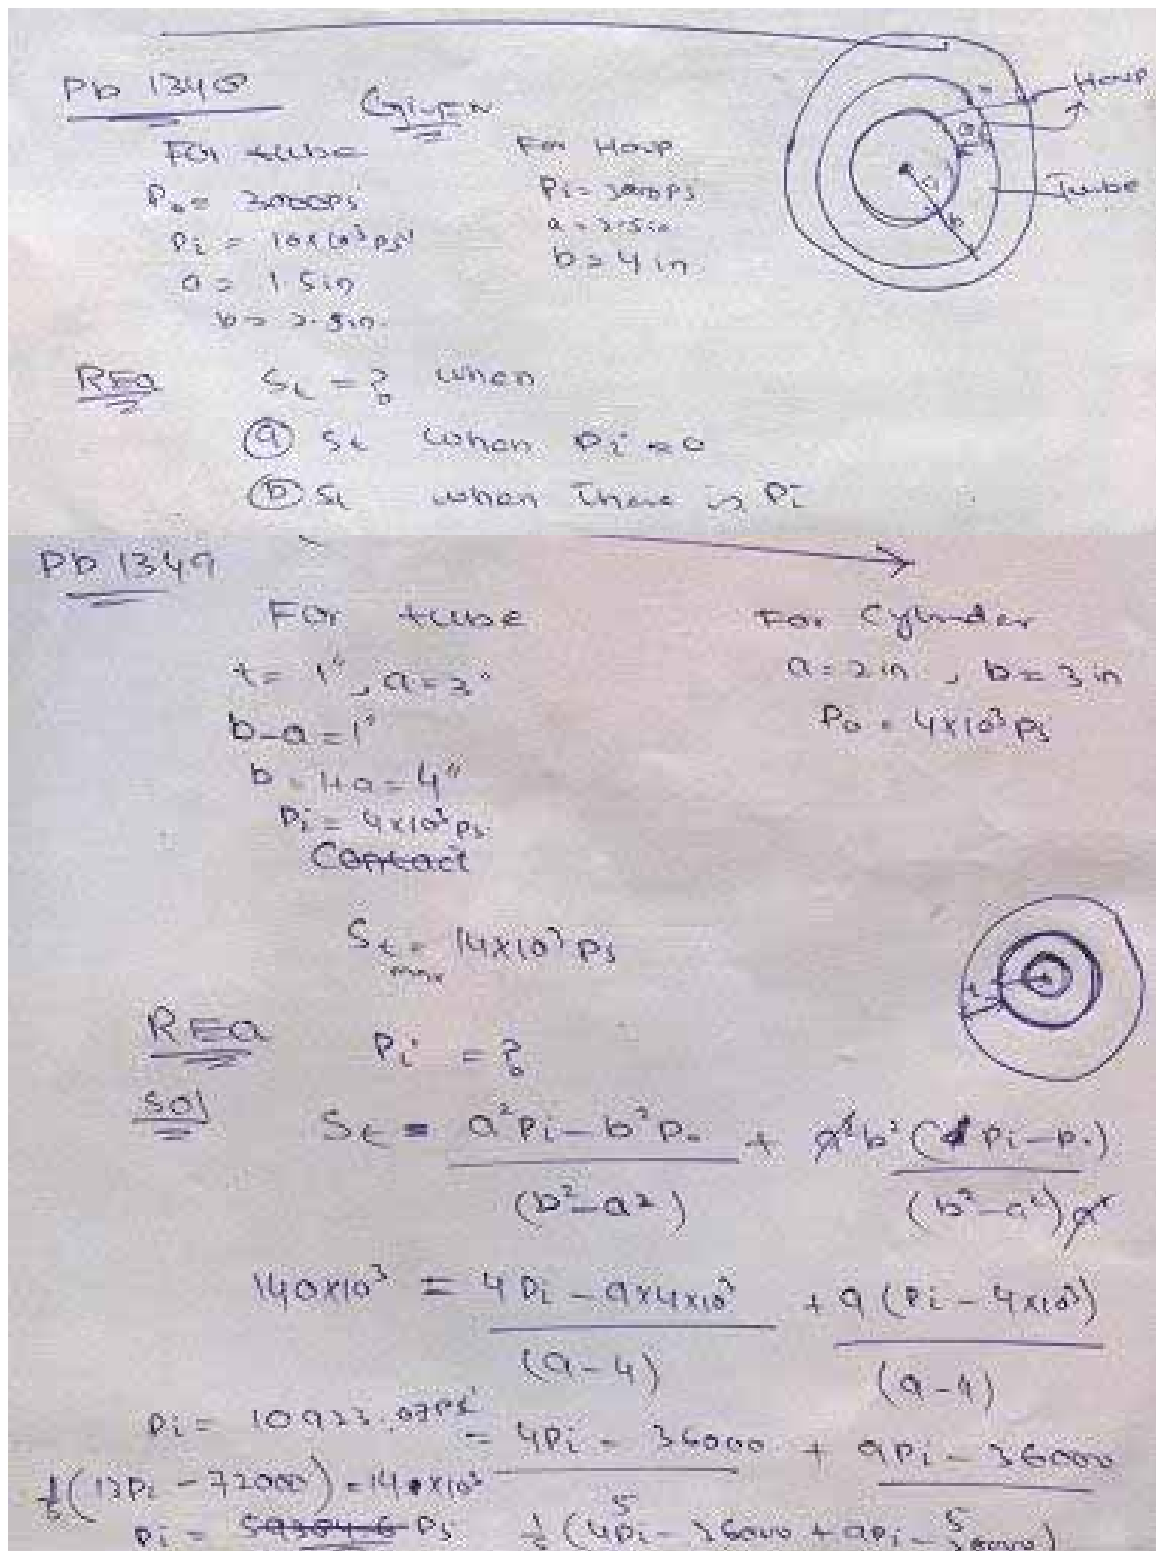 Pb 1348
Given
For tube
P₀ = 3000 Psi
Pi = 10×10³ psi
a = 1.5 in
b = 2.5 in.
For Hoop
Pi = 3000 Psi
a = 2.5 in
b = 4 in.
Hoop
Tube
REQ St = ? when
(a) St when Pi = 0
(b) St when There is Pi
Pb 1349
For tube
t = 1", a = 3"
b-a = 1"
b = 1+a = 4"
Pi = 4×10³ psi
Contact
For Cylinder
a = 2 in , b = 3 in
P₀ = 4×10³ Psi
St max = 14×10³ Psi
REQ Pi = ?
Sol St = a²Pi - b²P₀ / (b²-a²) + a²b²(Pi-P₀) / (b²-a²)a²
140×10³ = 4Pi - 9×4×10³ / (9-4) + 9(Pi - 4×10³) / (9-4)
Pi = 10923.07 Psi
= 4Pi - 36000 / 5 + 9Pi - 36000 / 5
1/5 (13Pi - 72000) = 140×10³
Pi = Psi 1/5 (4Pi - 36000 + 9Pi - 36000)